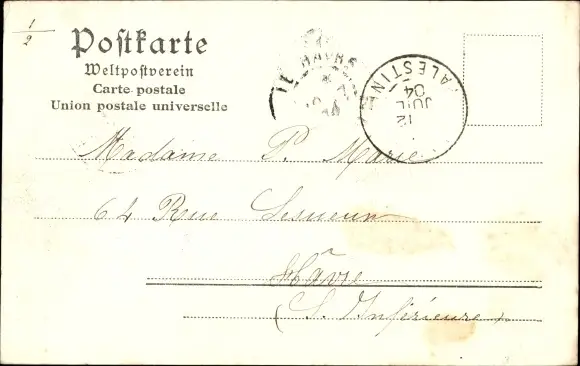 1/2
Postkarte
Weltpostverein
Carte postale
Union postale universelle
HAVRE
PALESTINE
12
JUIL
04
Madame P. Marie
64 Rue Lesueur
Hâvre
(S. Inférieure)